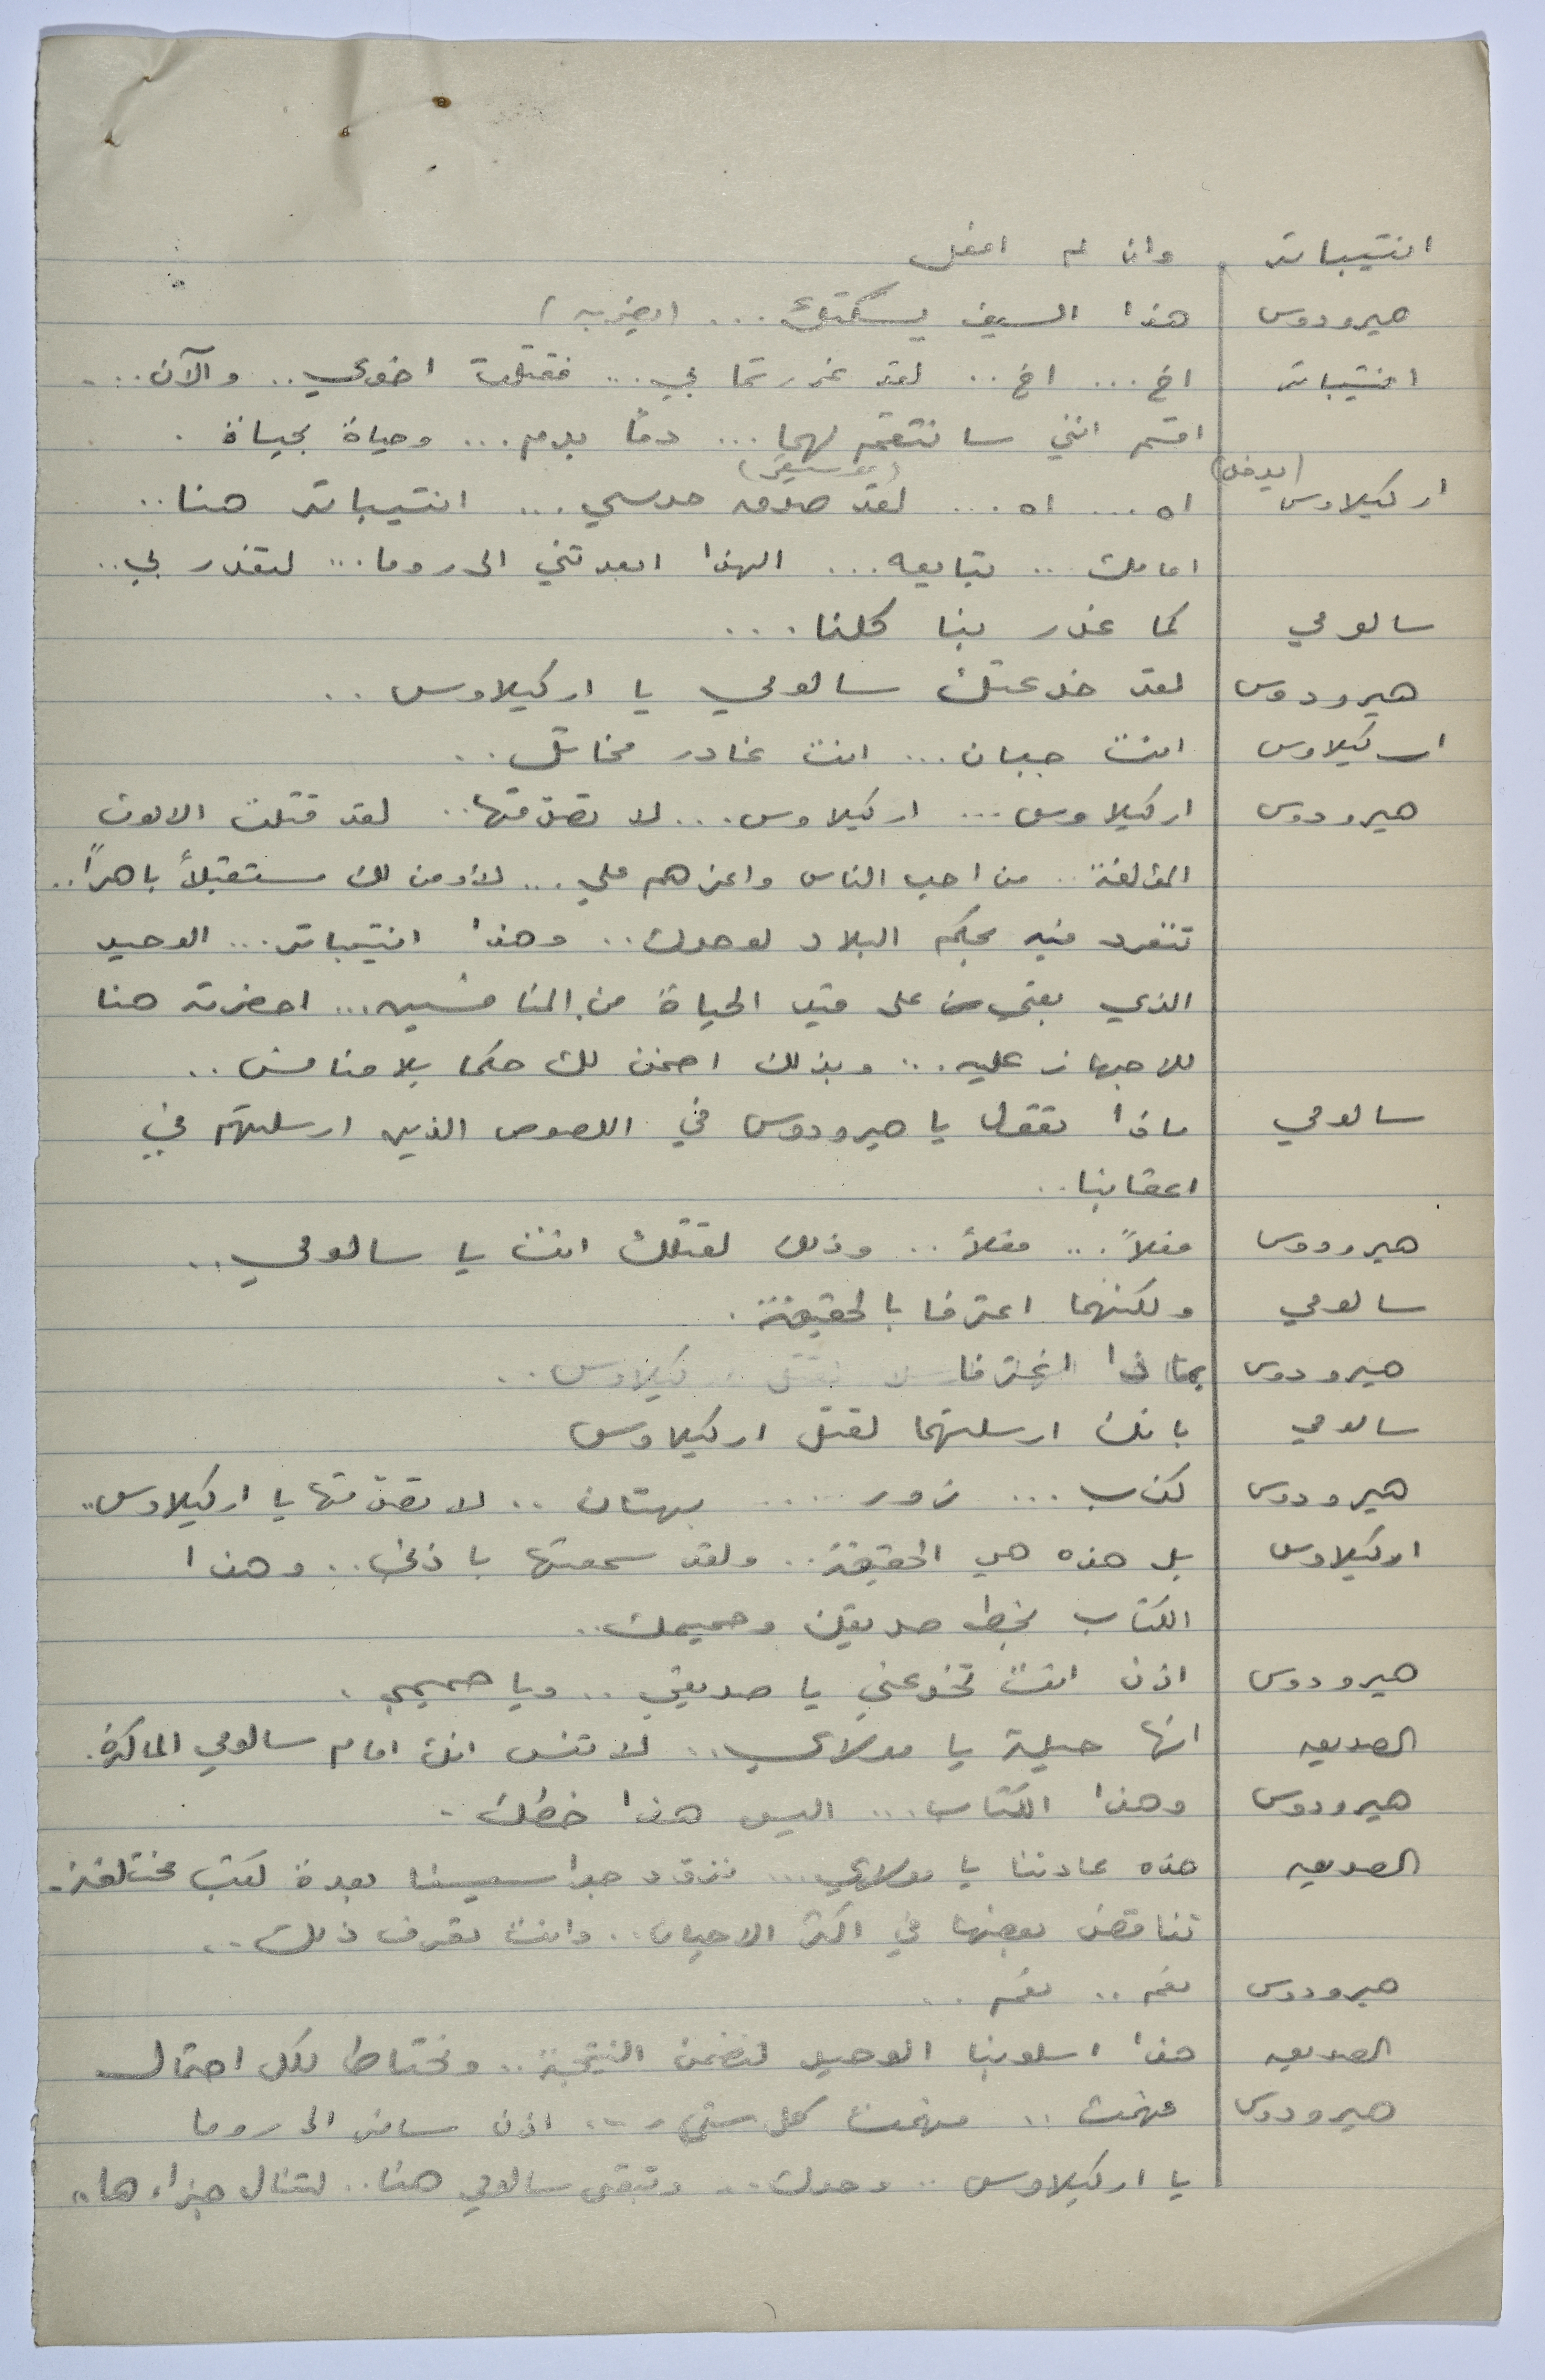 انتيباتر وان لم افعل
هيرودوس هذا السيف يسكتك... (يضربه)
انتيباتر اخ... اخ.. لقد غررتما بي... فقتلت اخوي.. والآن...
اقسم انني سانتقم لهما... دماً بدم... وحياة بحياة.
(يدخل) (موسيقى)
اركيلاوس اه... اه... لقد صدق حدسي... انتيباتر هنا..
امامك.. تبايعه... الهذا ابعدتني الى روما... لتغدر بي..
سالومي كما غدر بنا كلنا...
هيرودوس لقد خدعتك سالومي يا اركيلاوس..
اركيلاوس انت جبان... انت غادر مخاتل..
هيرودوس اركيلاوس... اركيلاوس... لا تصدقها.. لقد قتلت الالوف
المؤلفة.. من احب الناس واعزهم علي... لأؤمن لك مستقبلاً باهراً..
تنفرد فيه بحكم البلاد لوحدك.. وهذا انتيباتر... الوحيد
الذي بقي على قيد الحياة من المنافسين... احضرته هنا
للاجهاز عليه... وبذلك اضمن لك حكما بلا منافس..
سالومي ماذا تقول يا هيرودوس في اللصوص الذين ارسلتهم في
اعقابنا..
هيرودوس فعلاً... فعلاً.. وذلك لقتلك انت يا سالومي..
سالومي ولكنهما اعترفا بالحقيقة.
هيرودوس بماذا اعترفا
سالومي بانك ارسلتهما لقتل اركيلاوس
هيرودوس كذب... زور.... بهتان.. لا تصدقها يا اركيلاوس..
اركيلاوس بل هذه هي الحقيقة.. ولقد سمعتها باذني.. وهذا
الكتاب بخط صديقك وحميمك..
هيرودوس اذن انت تخدعني يا صديقي.. ويا حميمي.
الصديق انها حيلة يا مولاي.. لا تنس انك امام سالومي الماكرة.
هيرودوس وهذا الكتاب... اليس هذا خطك.
الصديق هذه عادتنا يا مولاي... نزود جواسيسنا بعدة كتب مختلفة.
تناقض بعضها في اكثر الاحيان.. وانت تعرف ذلك..
هيرودوس نعم.. نعم..
الصديق هذا اسلوبنا الوحيد لنضمن النتيجة.. ونحتاط لكل احتمال
هيرودوس فهمت.. فهمت كل شيء... اذن سافر الى روما
يا اركيلاوس.. وحدك.. وتبقى سالومي هنا.. لتنال جزاءها..